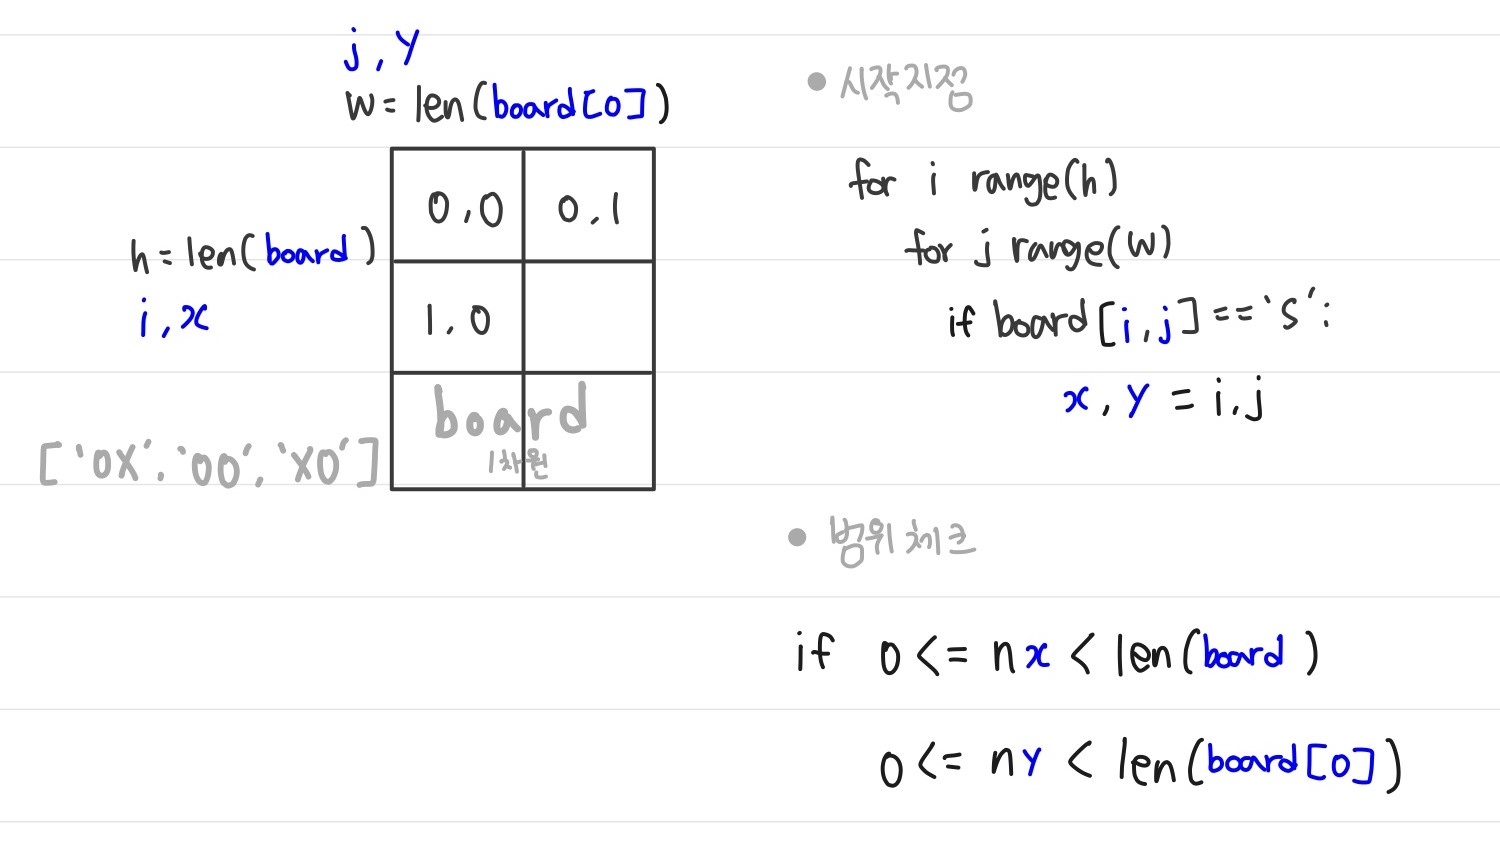 j, y
w = len(board[0])
0,0 0,1
h = len(board)
i, x
1,0
board
1차원
['OX', 'OO', 'XO']
● 시작지점
for i range(h)
for j range(w)
if board[i,j] == 'S':
x, y = i, j
● 범위 체크
if 0 <= nx < len(board )
0 <= ny < len(board[0])